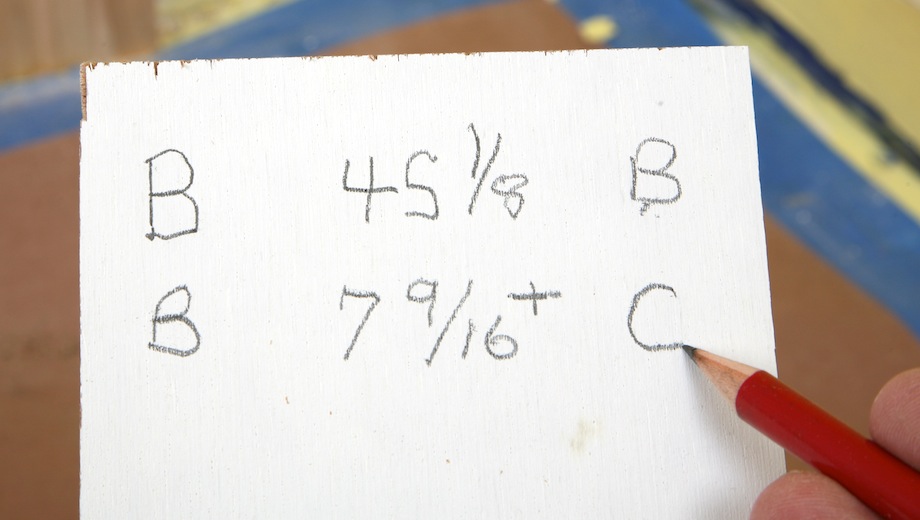 B 45 1/8 B
B 7 9/16+ C